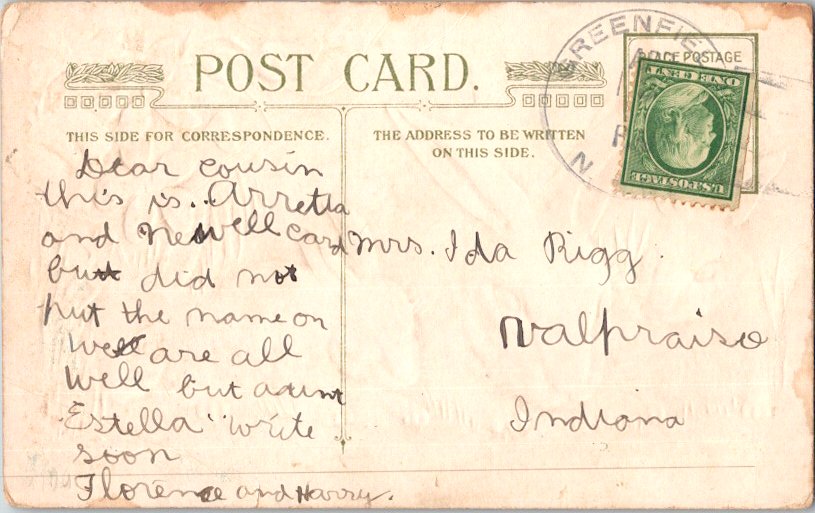 POST CARD.
THIS SIDE FOR CORRESPONDENCE.
THE ADDRESS TO BE WRITTEN
ON THIS SIDE.
PLACE POSTAGE
GREENFIE
N.
U.S. POSTAGE
ONE CENT
Dear cousin
this is.. Arretta
and Newell card
but did not
put the name on
We are all
well but aunt
Estella write
soon
Florence and Harry.
Mrs. Ida Rigg.
Valpraiso
Indiana